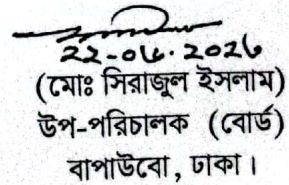 ২২-০৬-২০২৬
(মোঃ সিরাজুল ইসলাম)
উপ-পরিচালক (বোর্ড)
বাপাউবো, ঢাকা।